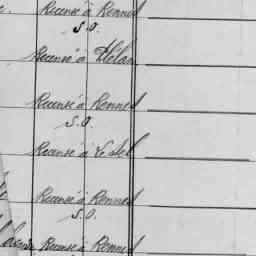 Recensé à Rennes
S.O.
Recensé à Plélan
Recensé à Rennes
S.O.
Recensé à
Recensé à Rennes
S.O.
Recensé à Rennes